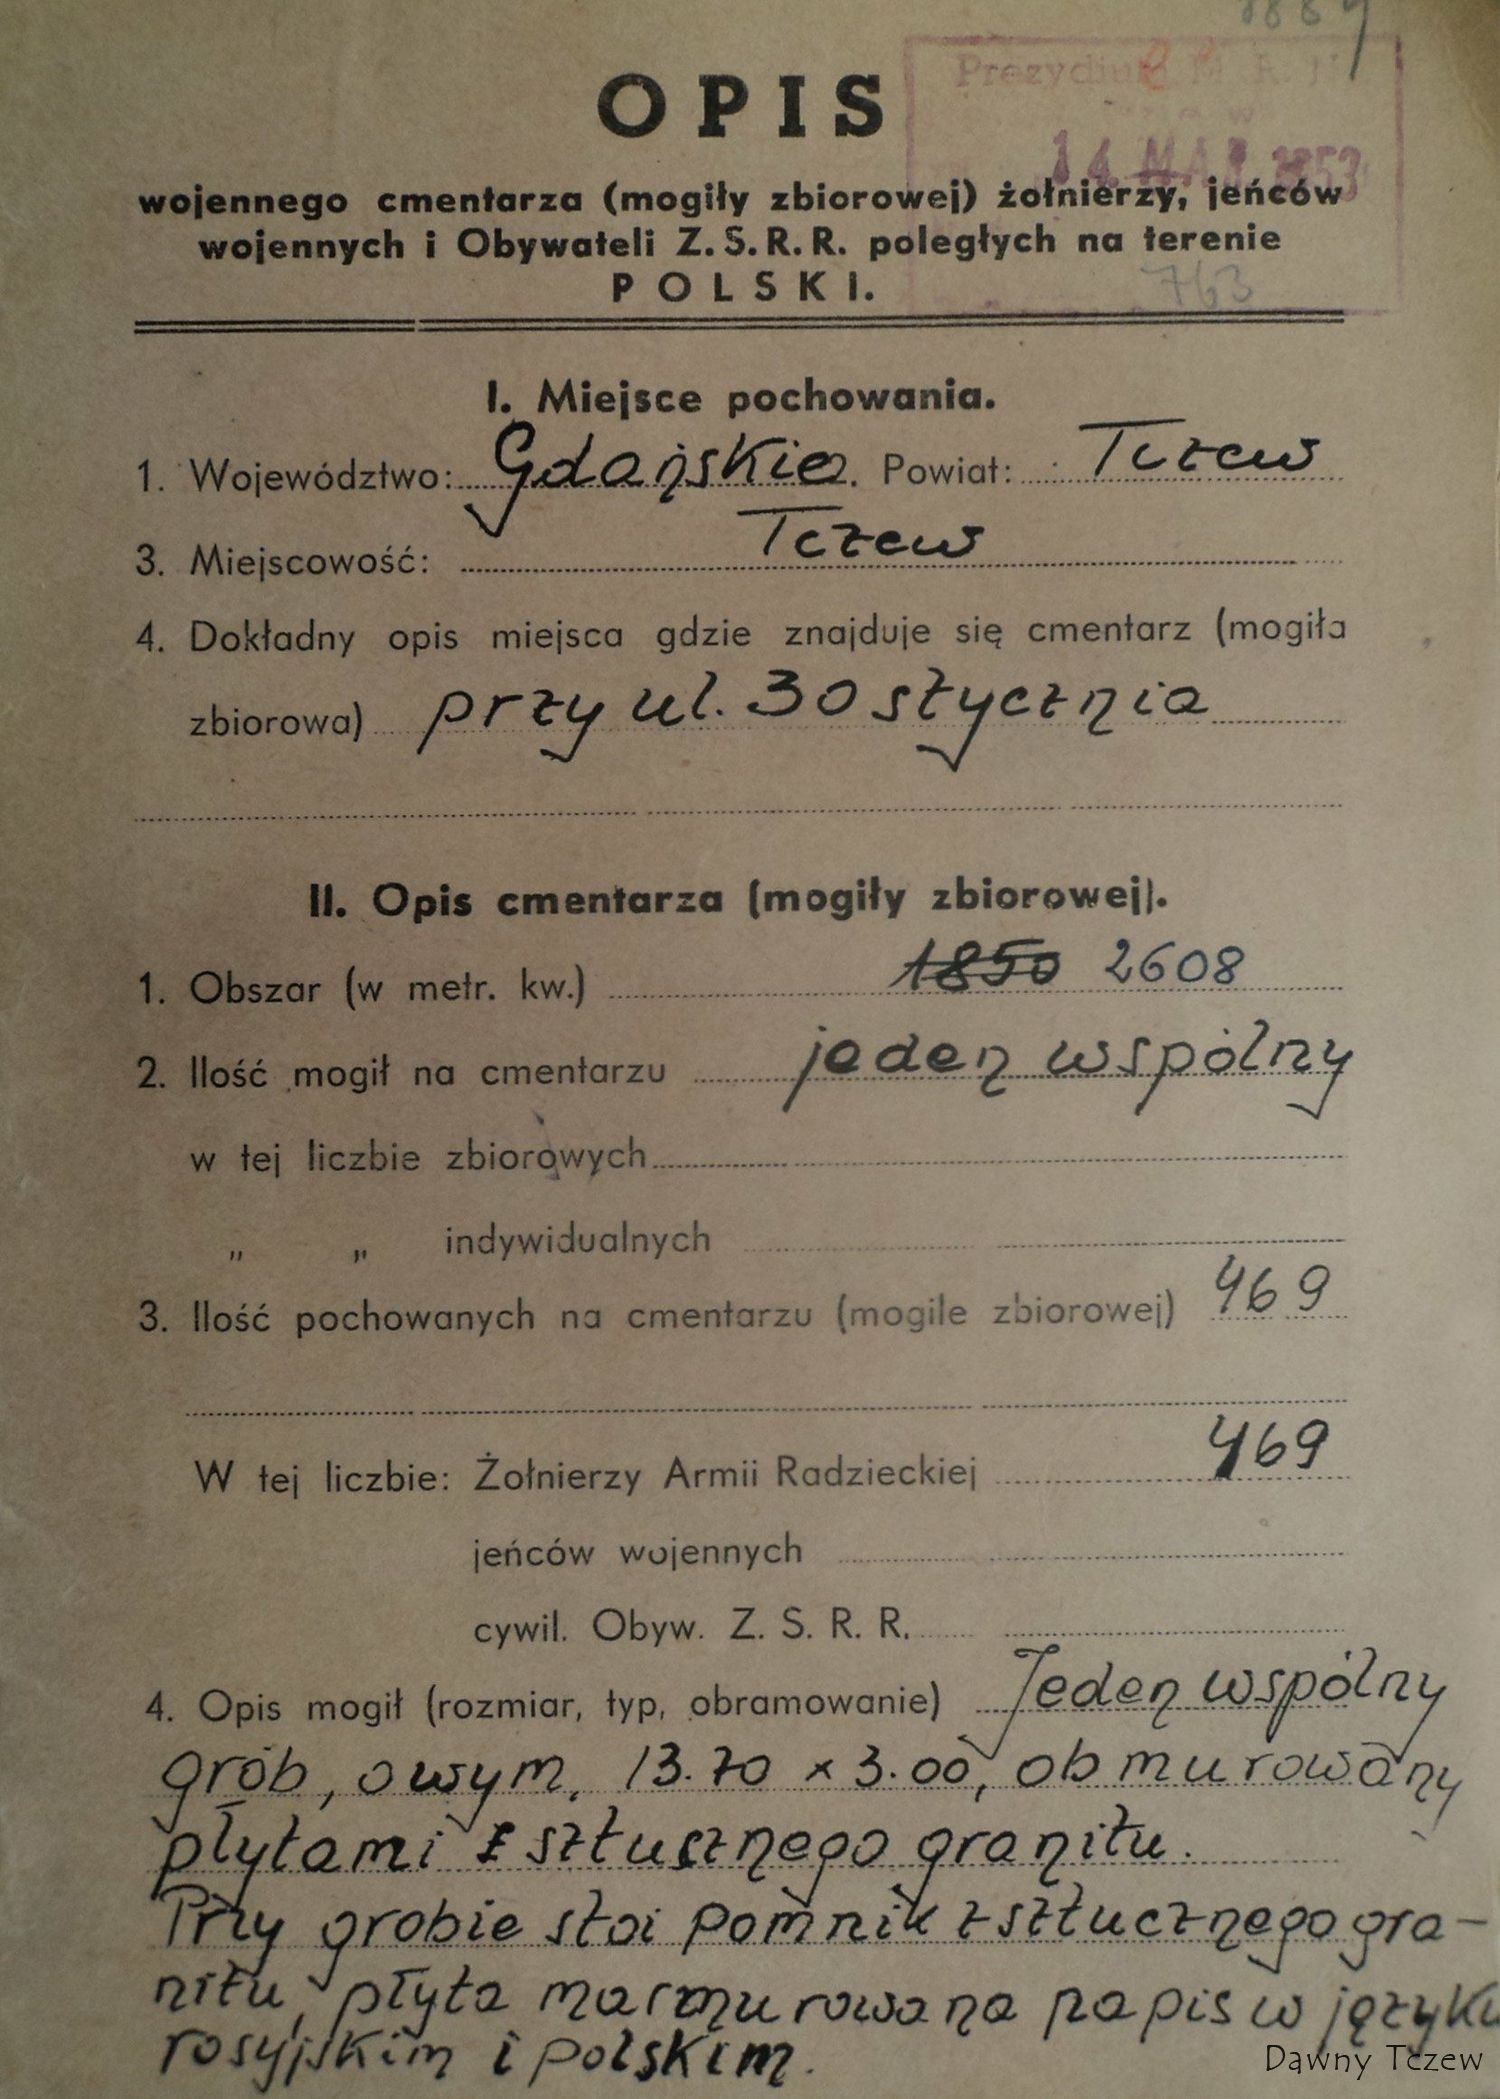 1889
Prezydium M. R. N.
14 MAJ 1953
763
OPIS
wojennego cmentarza (mogiły zbiorowej) żołnierzy, jeńców
wojennych i Obywateli Z.S.R.R. poległych na terenie
POLSKI.
I. Miejsce pochowania.
1. Województwo: Gdańskie. Powiat: Tczew
3. Miejscowość: Tczew
4. Dokładny opis miejsca gdzie znajduje się cmentarz (mogiła
zbiorowa) przy ul. 30 stycznia
II. Opis cmentarza (mogiły zbiorowej).
1. Obszar (w metr. kw.) 1850 2608
2. Ilość mogił na cmentarzu jeden wspólny
w tej liczbie zbiorowych
" " indywidualnych
3. Ilość pochowanych na cmentarzu (mogile zbiorowej) 469
W tej liczbie: Żołnierzy Armii Radzieckiej 469
jeńców wojennych
cywil. Obyw. Z. S. R. R.
4. Opis mogił (rozmiar, typ, obramowanie) Jeden wspólny
grób, o wym. 13.70 x 3.00, obmurowany
płytami z sztucznego granitu.
Przy grobie stoi pomnik z sztucznego gra-
nitu, płyta marmurowa na papis w języku
rosyjskim i polskim.
Dawny Tczew